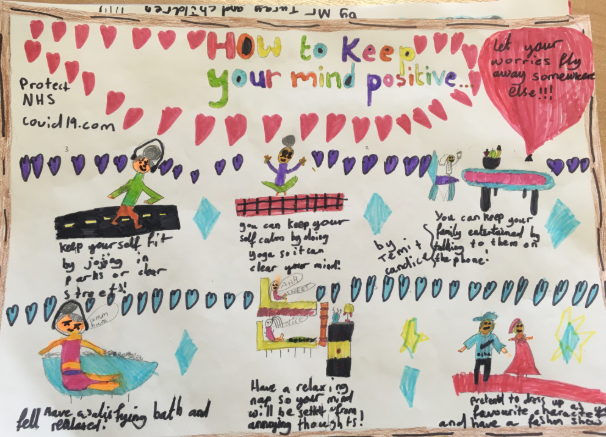 by Mr Turay and children
HOW to Keep
your mind positive...
Protect
NHS
Covid19.com
let your
worries fly
away somewhere
else!!!
Keep yourself fit
by jojing in
parks or clear
streets!
you can keep your
self calm by doing
Yoga so it can
clear your mind!
by
Temit
candice
You can keep your
family entertained by
talking to them on
the phone!
Have a satisfying bath and
fell relaxed!
Have a relaxing
nap so your mind
will be settelt from
annoying thoughts!
pretend to dress up as your
favourite character
and have a fashion show